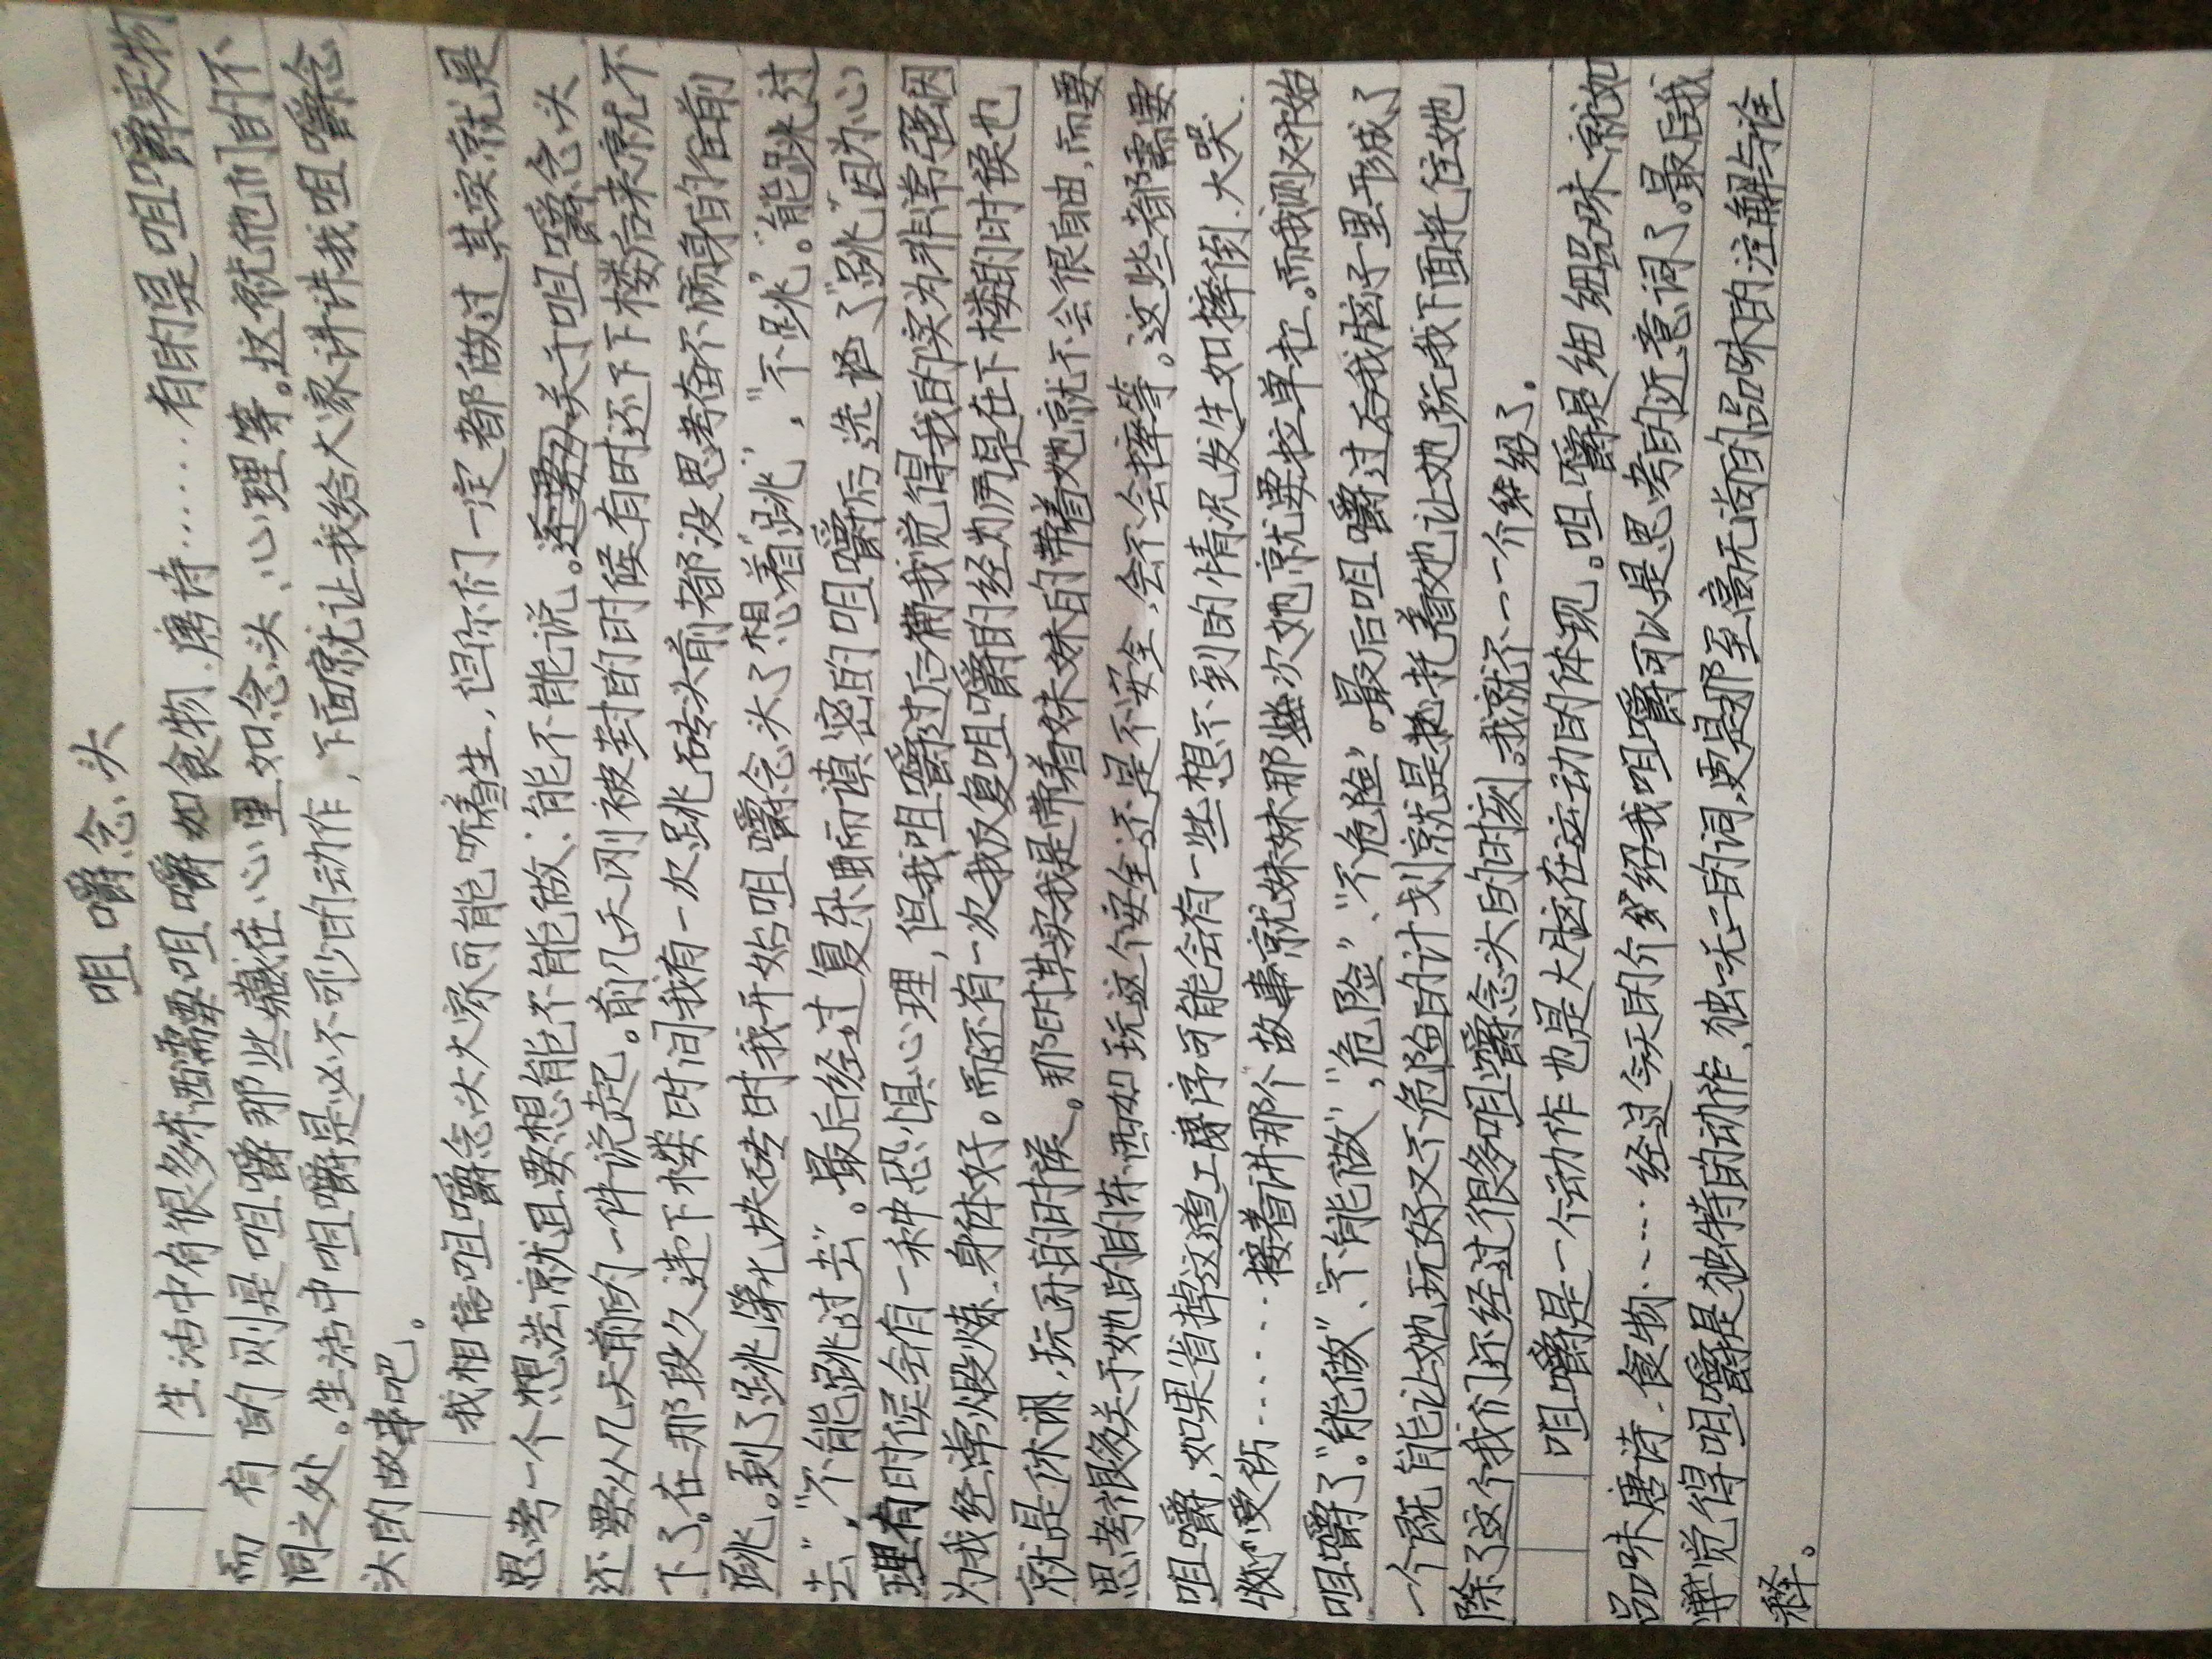 咀嚼念头
生活中有很多东西需要咀嚼如食物、唐诗……有的是咀嚼实物
而有的则是咀嚼那些藏在心里如念头、心理等。这就他们的不
同之处。生活中咀嚼是必不可少的动作，下面就让我给大家讲讲我咀嚼念
头的故事吧。
我相信咀嚼念头大家可能陌生，但你们一定都做过其实就是
思考一个想法就且要想能不能做；能不能说。关于咀嚼念头
还要从几天前的一件说起。前几天刚被封的时候有时还下下楼后来就不
下了。在那段久违下楼时间我有一次跳砖头前都没思考奋不顾身的往前
跳。到了跳第七块砖时我开始咀嚼念头了想着“跳”，“不跳”。“能跳过
去”，“不能跳过去”。最后经过复杂而慎密的咀嚼后选择了“跳”因为心
理有时侯会有一种恐惧心理，但我咀嚼过后我觉得我的实力非常强因
为我经常煅炼、身体好。而还有一次我反复咀嚼的经力旁是在下楼的时候也
就是休闲，玩耍的时候。那时其实我是带着妹妹的带着她就不会很自由，而要
思考很多关于她的的东西如玩这个安全还是不安全、会不会摔等。这些都需要
咀嚼，如果省掉这道工序可能会有一些想不到的情况发生如摔倒、大哭、
受伤……接着讲那个故事就妹妹那些次她就要拉单杠。而我则开始
咀嚼了。“能做”、“不能做”，“危险”、“不危险”。最后咀嚼过后我脑子里形成了
一个既能让她玩好又不危险的计划就是托着她让她玩我下面托住她
除了这个我们还经过很多咀嚼念头的时刻。我就不一一介绍了。
咀嚼是一个动作也是大脑在运动的体现。咀嚼是细细品味就如
品味唐诗、食物……经过今天的介绍我咀嚼可以是思考的近意词了。最后我
觉得咀嚼是独特的动作、独一无二的词、更是那至高无尚的品味的注解与诠
释。